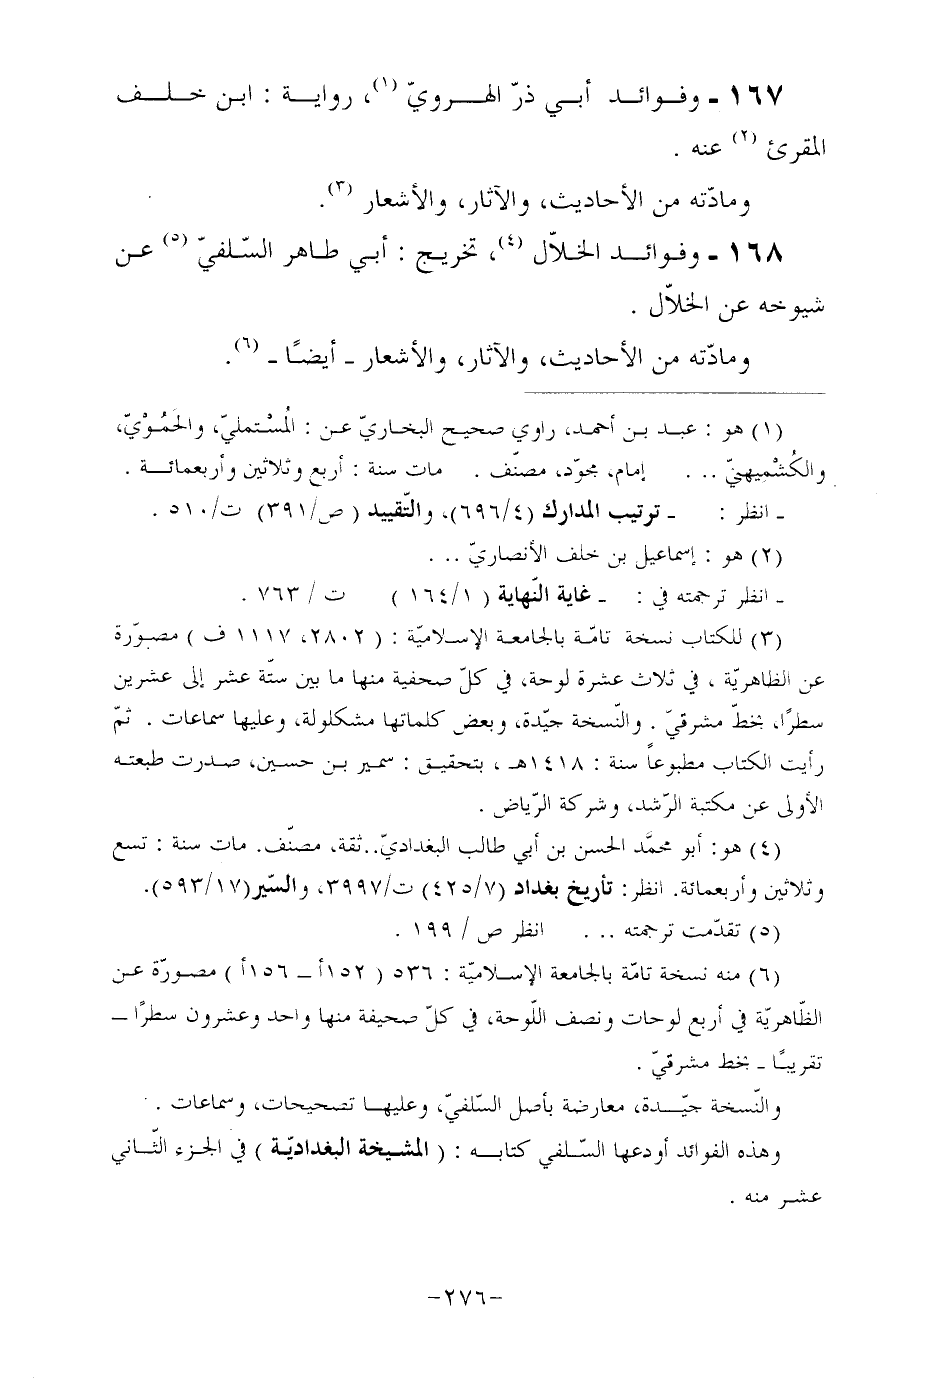 ١٦٧ ـ وفـوائـد أبـي ذرّ الهـرويّ (١)، روايـة : ابـن خـلـف
المقرئ (٢) عنه .
ومادّته من الأحاديث، والآثار، والأشعار (٣).
١٦٨ ـ وفـوائـد الخـلاّل (٤)، تخريـج : أبـي طـاهر السّـلفيّ (٥) عـن
شيوخه عن الخلاّل .
ومادّته من الأحاديث، والآثار، والأشعار ـ أيضًـا ـ (٦).
(١) هو : عبـد بـن أحمـد، راوي صحيـح البخـاريّ عـن : المُسْتملـيّ، والحَمُّوْيّ،
والكُشْميهنيّ ... إمام، مجوّد، مصنّف . مات سنة : أربع وثلاثين وأربعمائـة .
ـ انظر : ـ ترتيب المدارك (٦٩٦/٤)، والتّقييد ( ص/٣٩١) ت/٥١٠ .
(٢) هو : إسماعيل بن خلف الأنصاريّ ...
ـ انظر ترجمته في : ـ غاية النّهاية ( ١٦٤/١ ) ت / ٧٦٣ .
(٣) للكتاب نسخة تامّـة بالجامعة الإسـلاميّة : ( ٢٨٠٢، ١١١٧ ف ) مصـوّرة
عن الظاهريّة ، في ثلاث عشرة لوحة، في كلّ صحفية منها ما بين ستّة عشر إلى عشرين
سطرًا، بخطّ مشرقيّ . والنّسخة جيّدة، وبعض كلماتها مشكلولة، وعليها سماعات . ثمّ
رأيت الكتاب مطبوعاً سنة : ١٤١٨هـ ، بتحقيـق : سمـير بـن حسـين، صـدرت طبعتـه
الأولى عن مكتبة الرّشد، وشركة الرّياض .
(٤) هو: أبو محمَّد الحسن بن أبي طالب البغداديّ..ثقة، مصنّف. مات سنة : تسع
وثلاثين وأربعمائة. انظر: تأريخ بغداد (٤٢٥/٧) ت/٣٩٩٧، والسِّير(٥٩٣/١٧).
(٥) تقدّمت ترجمته ... انظر ص / ١٩٩ .
(٦) منه نسخة تامّـة بالجامعة الإسـلاميّة : ٥٣٦ ( ١٥٢أ ـ ١٥٦أ ) مصـورّة عـن
الظّاهريّة في أربع لوحات ونصف اللّوحة، في كلّ صحيفة منها واحد وعشرون سطرًا ـ
تقريبًا ـ بخط مشرقيّ .
والنّسخة جيّـدة، معارضة بأصل السّلفيّ، وعليهـا تصحيحات، وسماعات .
وهذه الفوائد أودعها السّـلفي كتابـه : ( المشيخة البغداديّـة ) في الجزء الثّـاني
عشـر منه .
-٢٧٦-